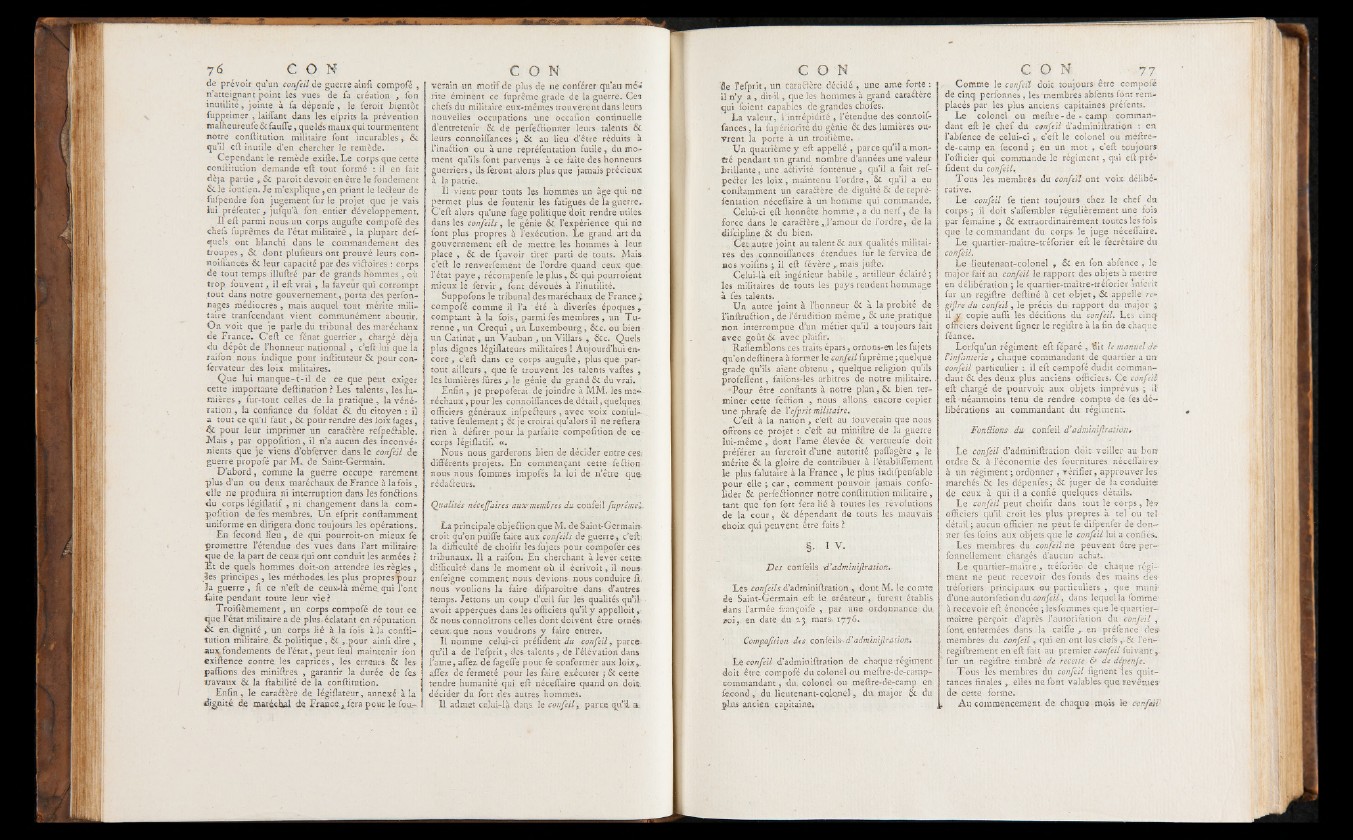 76 C O N
de prévoir qu'un conseil de guerre ainsi composé ,
n'atteignant point les vues de sa création , son
inutilité, jointe à sa dépense , le feroit bientôt
supprimer , laissant dans les esprits la prévention
malheureuse & fausse , que les maux qui tourmentent
notre constitution militaire sont incurables, &
qu'il est inutile d'en chercher le remède.
Cependant le remède existe. Le corps que cette
constitution demande est tout formé : il en fait
déja partie , & paroît devoir en être le fondement
& le soutien. Je m'explique , en priant le lecteur de
suspendre son jugement sur le projet que je vais
lui présenter , jusqu'à son entier développement.
Il est parmi nous un corps auguste composé des
chefs suprêmes de l'état militaire , la plupart des-
quels ont blanchi dans le commandement des
troupes, & dont plusieurs ont prouvé leurs con-
noissances & leur capacité par des victoires : corps
de tout temps illustré par de grands hommes , où
trop souvent , il est vrai , la faveur qui corrompt
tout dans notre gouvernement, porta des person-
nages médiocres , mais auquel tout mérite mili-
taire transcendant vient communément aboutir.
On voit que je parle du tribunal des maréchaux
de France. C'est ce sénat guerrier , chargé déja
du dépôt de l'honneur national , c'est lui que la
raison nous indique pour instituteur & pour con-
servateur des loix militaires.
Que lui manque-t-il de ce que peut exiger
cette importante destination ? Les talents , les lu-
mières , sur-tout celles de la pratique , la véné-
ration , la confiance du soldat & du citoyen : il
a tout ce qu'il faut , & pour rendre des loix sages ,
& pour leur imprimer un caractère respectable.
Mais , par opposition , il n'a aucun des inconvé-
nients que je viens d'observer dans le conseil de
guerre proposé par M. de Saint-Germain.
D'abord , comme la guerre occupe rarement
plus d'un ou deux maréchaux de France à la fois ,
elle ne produira ni interruption dans les fonctions
du corps législatif , ni changement dans la com-
position de ses membres. Un esprit constamment
uniforme en dirigera donc toujours les opérations.
En second lieu , de qui pourroit-on mieux se
promettre l'étendue des vues dans l'art militaire
que de la part de ceux qui ont conduit les armées ?
Et de quels hommes doit-on attendre les règles ,
les principes , les méthodes les plus propres pour
la guerre , si ce n'est de ceux-là même qui l'ont
faite pendant toute leur vie ?
Troisièmement , un corps composé de tout ce
que l'état militaire a de plus éclatant en réputation
& en dignité , un corps lié à la fois à la consti-
tution militaire & politique , & , pour ainsi dire ,
aux fondements de l'état, peut seul maintenir son
existence contre les caprices, les erreurs & les
passions des ministres , garantir la durée de ses
travaux & la stabilité de la constitution.
Enfin , le caractère de législateur, annexé à la
dignité de maréchal de France, sera pour le sou-
C O N
verain un motif de plus de ne conférer qu'au mé-
rite éminent ce suprême grade de la guerre. Ces
chefs du militaire eux-mêmes trouveront dans leurs
nouvelles occupations une occasion continuelle
d'entretenir & de perfectionner leurs talents &
leurs connoissances ; & au lieu d'être réduits à
l'inaction ou à une représentation futile, du mo-
ment qu'ils sont parvenus à ce faîte des honneurs
guerriers, ils seront alors plus que jamais précieux
à la patrie.
Il vient pour touts les hommes un âge qui ne
permet plus de soutenir les fatigues de la guerre.
C'est alors qu'une sage politique doit rendre utiles
dans les conseils, le génie & l'expérience qui ne
sont plus propres à l'exécution. Le grand art du
gouvernement est de mettre les hommes à leur
place , & de sçavoir tirer parti de touts. Mais
c'est le renversement de l'ordre quand ceux que
l'état paye, récompense le plus, & qui pourroient
mieux le servir , sont dévoués à l'inutilité.
Supposons le tribunal des maréchaux de France ;
composé comme il l'a été à diverses époques,
comptant à la fois, parmi ses membres , un Tu-
renne , un Crequi , un Luxembourg, &c. ou bien
un Catinat , un Vauban , un Villars , &c. Quels
plus dignes législateurs militaires ! Aujourd'hui en-
core , c'est dans ce corps auguste, plus que par-
tout ailleurs , que se trouvent les talents vastes ,
les lumières sûres , le génie du grand & du vrai.
Enfin, je proposerai de joindre à MM. les ma-
réchaux , pour les connoissances de détail, quelques
officiers généraux inspecteurs , avec voix consul-
tative seulement ; & je croirai qu'alors il ne restera
rien à désirer pour la parfaite composition de ce
corps législatif «.
Nous nous garderons bien de décider entre ces
différents projets. En commençant cette section
nous nous sommes imposés la loi de n'être que
rédacteurs.
Qualités nécessaires aux membres du conseil suprême.
La principale objection que M. de Saint-Germain
croit qu'on puisse faire aux conseils de guerre, c'est
la difficulté de choisir les sujets pour composer ces
tribunaux. Il a raison. En cherchant à lever cette
difficulté dans le moment où il écrivoit , il nous
enseigne comment nous devions nous conduire si
nous voulions la faire disparoître dans d'autres
temps. Jettons un coup d'œil sur les qualités qu'il
avoit apperçues dans les officiers qu'il y appelloit ,
& nous connoîtrons celles dont doivent être ornés
ceux que nous voudrons y faire entrer.
Il nomme celui-ci président du conseil , parce
qu'il a de l'esprit, des talents , de l'élévation dans
l'ame, assez de sagesse pour se conformer aux loix,
assez de fermeté pour les faire exécuter ; & cette
tendre humanité qui est nécessaire quand on doit
décider du sort des autres hommes.
Il admet celui-là dans le conseil, parce qu'il a
C O N
de l'esprit, un caractère décidé , une ame forte :
il n'y a , dit-il , que les hommes à grand caractère
qui soient capables de grandes choses.
La valeur, l'intrépidité , l'étendue des connois-
sances , la supériorité du génie & des lumières ou-
vrent la porte à un troisième.
Un quatrième y est appellé , parce qu'il a mon-
tré pendant un grand nombre d'années une valeur
brillante , une activité soutenue , qu'il a fait res-
pecter les loix , maintenu l'ordre, & qu'il a eu
constamment un caractère de dignité & de repré-
sentation nécessaire à un homme qui commande.
Celui-ci est honnête homme , a du nerf, de la
force dans le caractère , l'amour de l'ordre, de la
discipline & du bien.
Cet autre joint au talent & aux qualités militai-
res des connoissances étendues sur le service de
nos voisins ; il est sévère , mais juste.
Celui-là est ingénieur habile , artilleur éclairé ;
les militaires de touts les pays rendent hommage
à ses talents.
Un autre joint à l'honneur & à la probité de
l'instruction, de l'érudition même , & une pratique
non interrompue d'un métier qu'il a toujours fait
avec goût & avec plaisir.
Rassemblons ces traits épars, ornons-en les sujets
qu'on destinera à former le conseil suprême ; quelque
grade qu'ils aient obtenu , quelque religion qu'ils
professent , faisons-les arbitres de notre militaire.
Pour être constants à notre plan, & bien ter-
miner cette section , nous allons encore copier
une phrase de l'esprit militaire.
C'est à la nation , c'est au souverain que nous
offrons ce projet : c'est au ministre de la guerre
lui-même , dont l'ame élevée & vertueuse doit
préférer au surcroît d'une autorité passagère , le
mérite & la gloire de contribuer à l'établissement
le plus salutaire à la France , le plus indispensable
pour elle ; car , comment pouvoir jamais conso-
lider & perfectionner notre constitution militaire ,
tant que son sort sera lié à toutes les révolutions
de la cour , & dépendant de touts les mauvais
choix qui peuvent être faits ?
§. I V.
Des conseils d'administration.
Les conseils d'administration , dont M. le comte
de Saint-Germain est le créateur , furent établis
dans l'armée françoise , par une ordonnance du
roi, en date du 23 mars 1776.
Composition des conseils d'administration.
Le conseil d'administration de chaque régiment
doit être composé du colonel ou mestre-de-camp-
commandant , du colonel ou mestre-de-camp en
second, du lieutenant-colonel , du major & du
plus ancien capitaine.
C O N 77
Comme le conseil doit toujours être composé
de cinq personnes, les membres absents sont rem-
placés par les plus anciens capitaines présents.
Le colonel ou mestre - de - camp comman-
dant est le chef du conseil d'administration : en
l'absence de celui-ci, c'est le colonel ou mestre-
de-camp en second ; en un mot , c'est toujours
l'officier qui commande le régiment , qui est pré-
sident du conseil.
Tous les membres du conseil ont voix délibé-
rative.
Le conseil se tient toujours chez le chef du
corps ; il doit s'assembler régulièrement une fois
par semaine ; & extraordinairement toutes les fois
que le commandant du corps le juge nécessaire.
Le quartier-maître-trésorier est le secrétaire du
conseil.
Le lieutenant-colonel , & en son absence , le
major fait au conseil le rapport des objets à mettre
en délibération ; le quartier-maître-trésorier inscrit
sur un registre destiné à cet objet, & appellé re-
gistre du conseil , le précis du rapport du major ;
il y copie aussi les décisions du conseil. Les cinq
officiers doivent signer le registre à la fin de chaque
séance.
Lorsqu'un régiment est séparé , dit le manuel de
l'infanterie , chaque commandant de quartier a un
conseil particulier : il est composé dudit comman-
dant & des deux plus anciens officiers. Ce conseil
est chargé de pourvoir aux objets imprévus ; il
est néanmoins tenu de rendre compte de ses dé-
libérations au commandant du régiment.
Fonctions du conseil d'administration.
Le conseil d'administration doit veiller au bon
ordre & à l'économie des fournitures nécessaires
à un régiment ; ordonner , vérifier, approuver les
marchés & les dépenses; & juger de la conduite
de ceux à qui il a confié quelques détails.
Le conseil peut choisir dans tout le corps, les
officiers qu'il croit les plus propres à tel ou tel
détail ; aucun officier ne peut se dispenser de don-
ner ses soins aux objets que le conseil lui a confiés.
Les membres du conseil ne peuvent être per-
sonnellement chargés d'aucun achat.
Le quartier-maître , trésorier de chaque régi-
ment ne peut recevoir des fonds des mains des
trésoriers principaux ou particuliers , que muni
d'une autorisation du conseil, dans lequel la somme
à recevoir est énoncée ; les sommes que le quartier-
maître perçoit d'après l'autorisation du conseil ,
sont enfermées dans la caisse , en présence des
membres du conseil , qui en ont les clefs , & l'en-
registrement en est fait au premier conseil suivant ,
sur un registre timbré de recette & de dépense.
Tous les membres du conseil signent les quit-
tances finales , elles ne sont valables que revêtues
de cette forme.
Au commencement de chaque mois le conseil